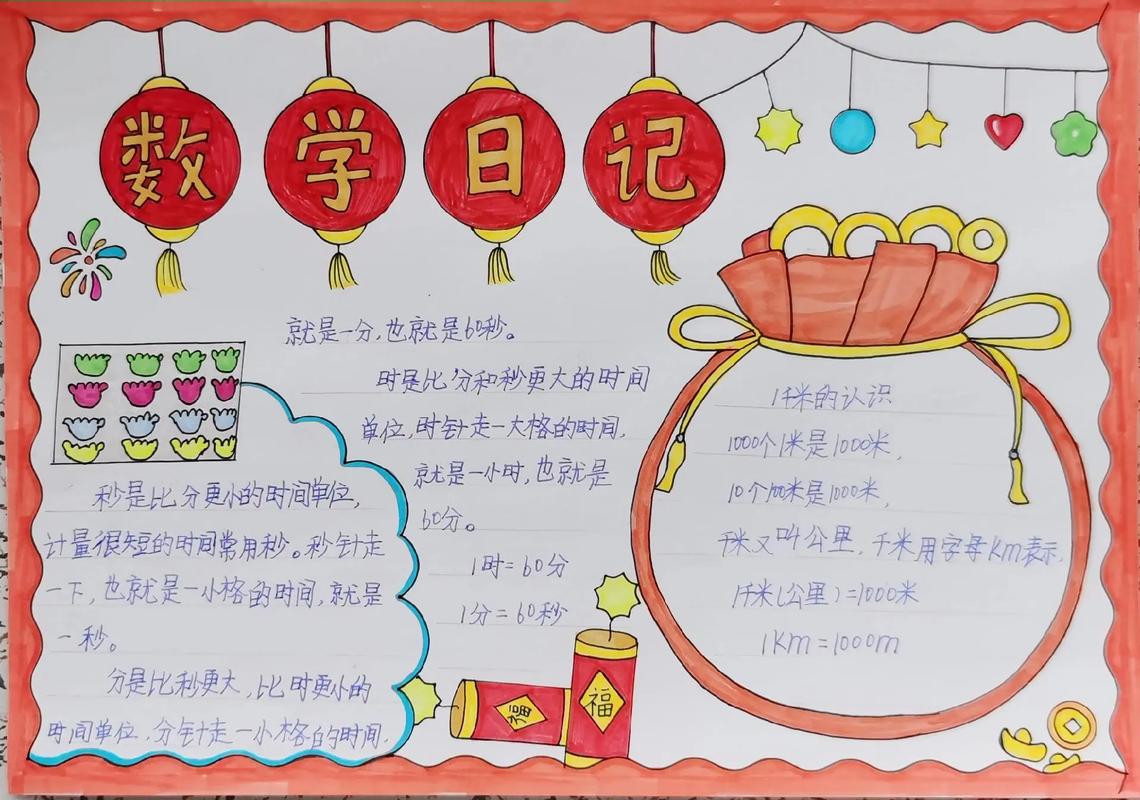 数学日记
秒是比分更小的时间单位,
计量很短的时间常用秒。秒针走
一下,也就是一小格的时间,就是
一秒。
分是比秒更大,比时更小的
时间单位,分针走一小格的时间,
就是一分,也就是60秒。
时是比分和秒更大的时间
单位,时针走一大格的时间,
就是一小时,也就是
60分。
1时=60分
1分=60秒
福
福
1千米的认识
1000个1米是1000米,
10个100米是1000米,
千米又叫公里,千米用字母Km表示,
1千米(公里)=1000米
1Km=1000m